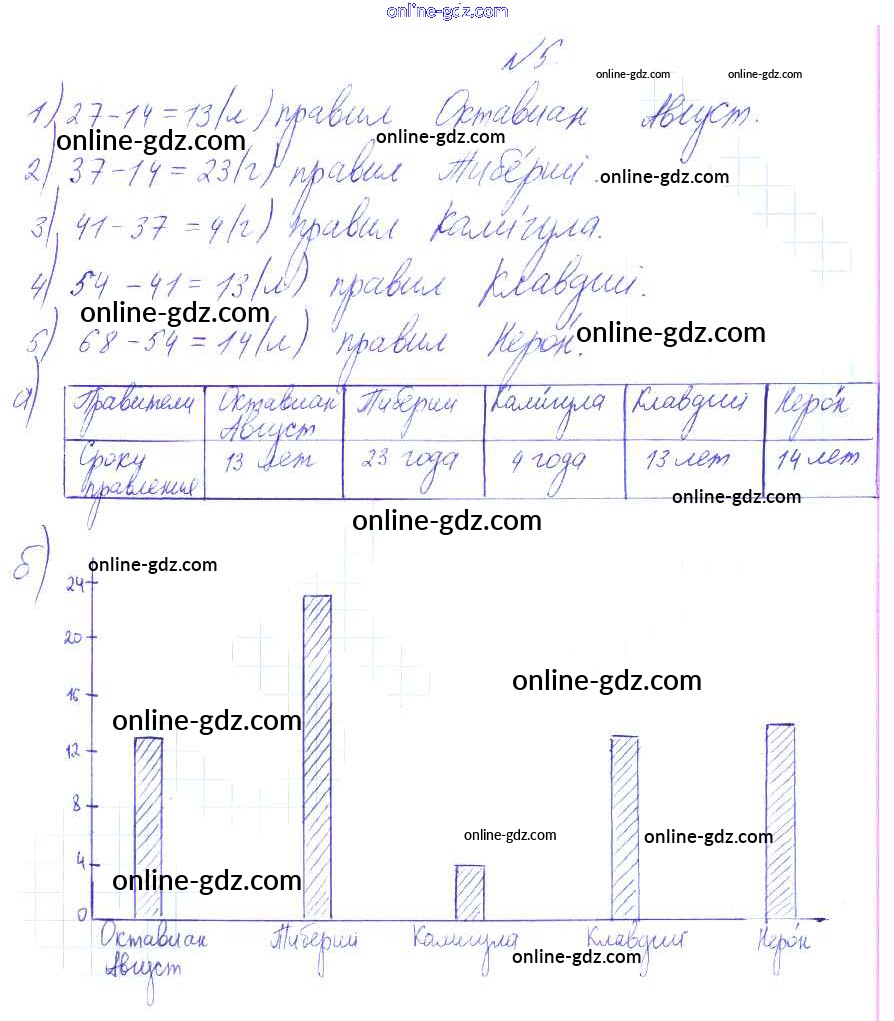 online-gdz.com
№5.
online-gdz.com online-gdz.com
1) 27-14=13(л) правил Октавиан Август.
online-gdz.com online-gdz.com
2) 37-14=23(г) правил Тибе́рий.
online-gdz.com
3) 41-37=4(г) правил Кали́гула.
4) 54-41=13(л) правил Клавдий.
online-gdz.com
5) 68-54=14(л) правил Неро́н.
online-gdz.com
а)
Правители Октавиан Август Тиберий Кали́гула Клавдий Неро́н
Сроку правления 13 лет 23 года 4 года 13 лет 14 лет
online-gdz.com
online-gdz.com
б)
online-gdz.com
24
20
16
12
8
4
0
online-gdz.com
online-gdz.com
online-gdz.com
online-gdz.com
online-gdz.com
Октавиан Август Тиберий Калигула Клавдий Неро́н
online-gdz.com